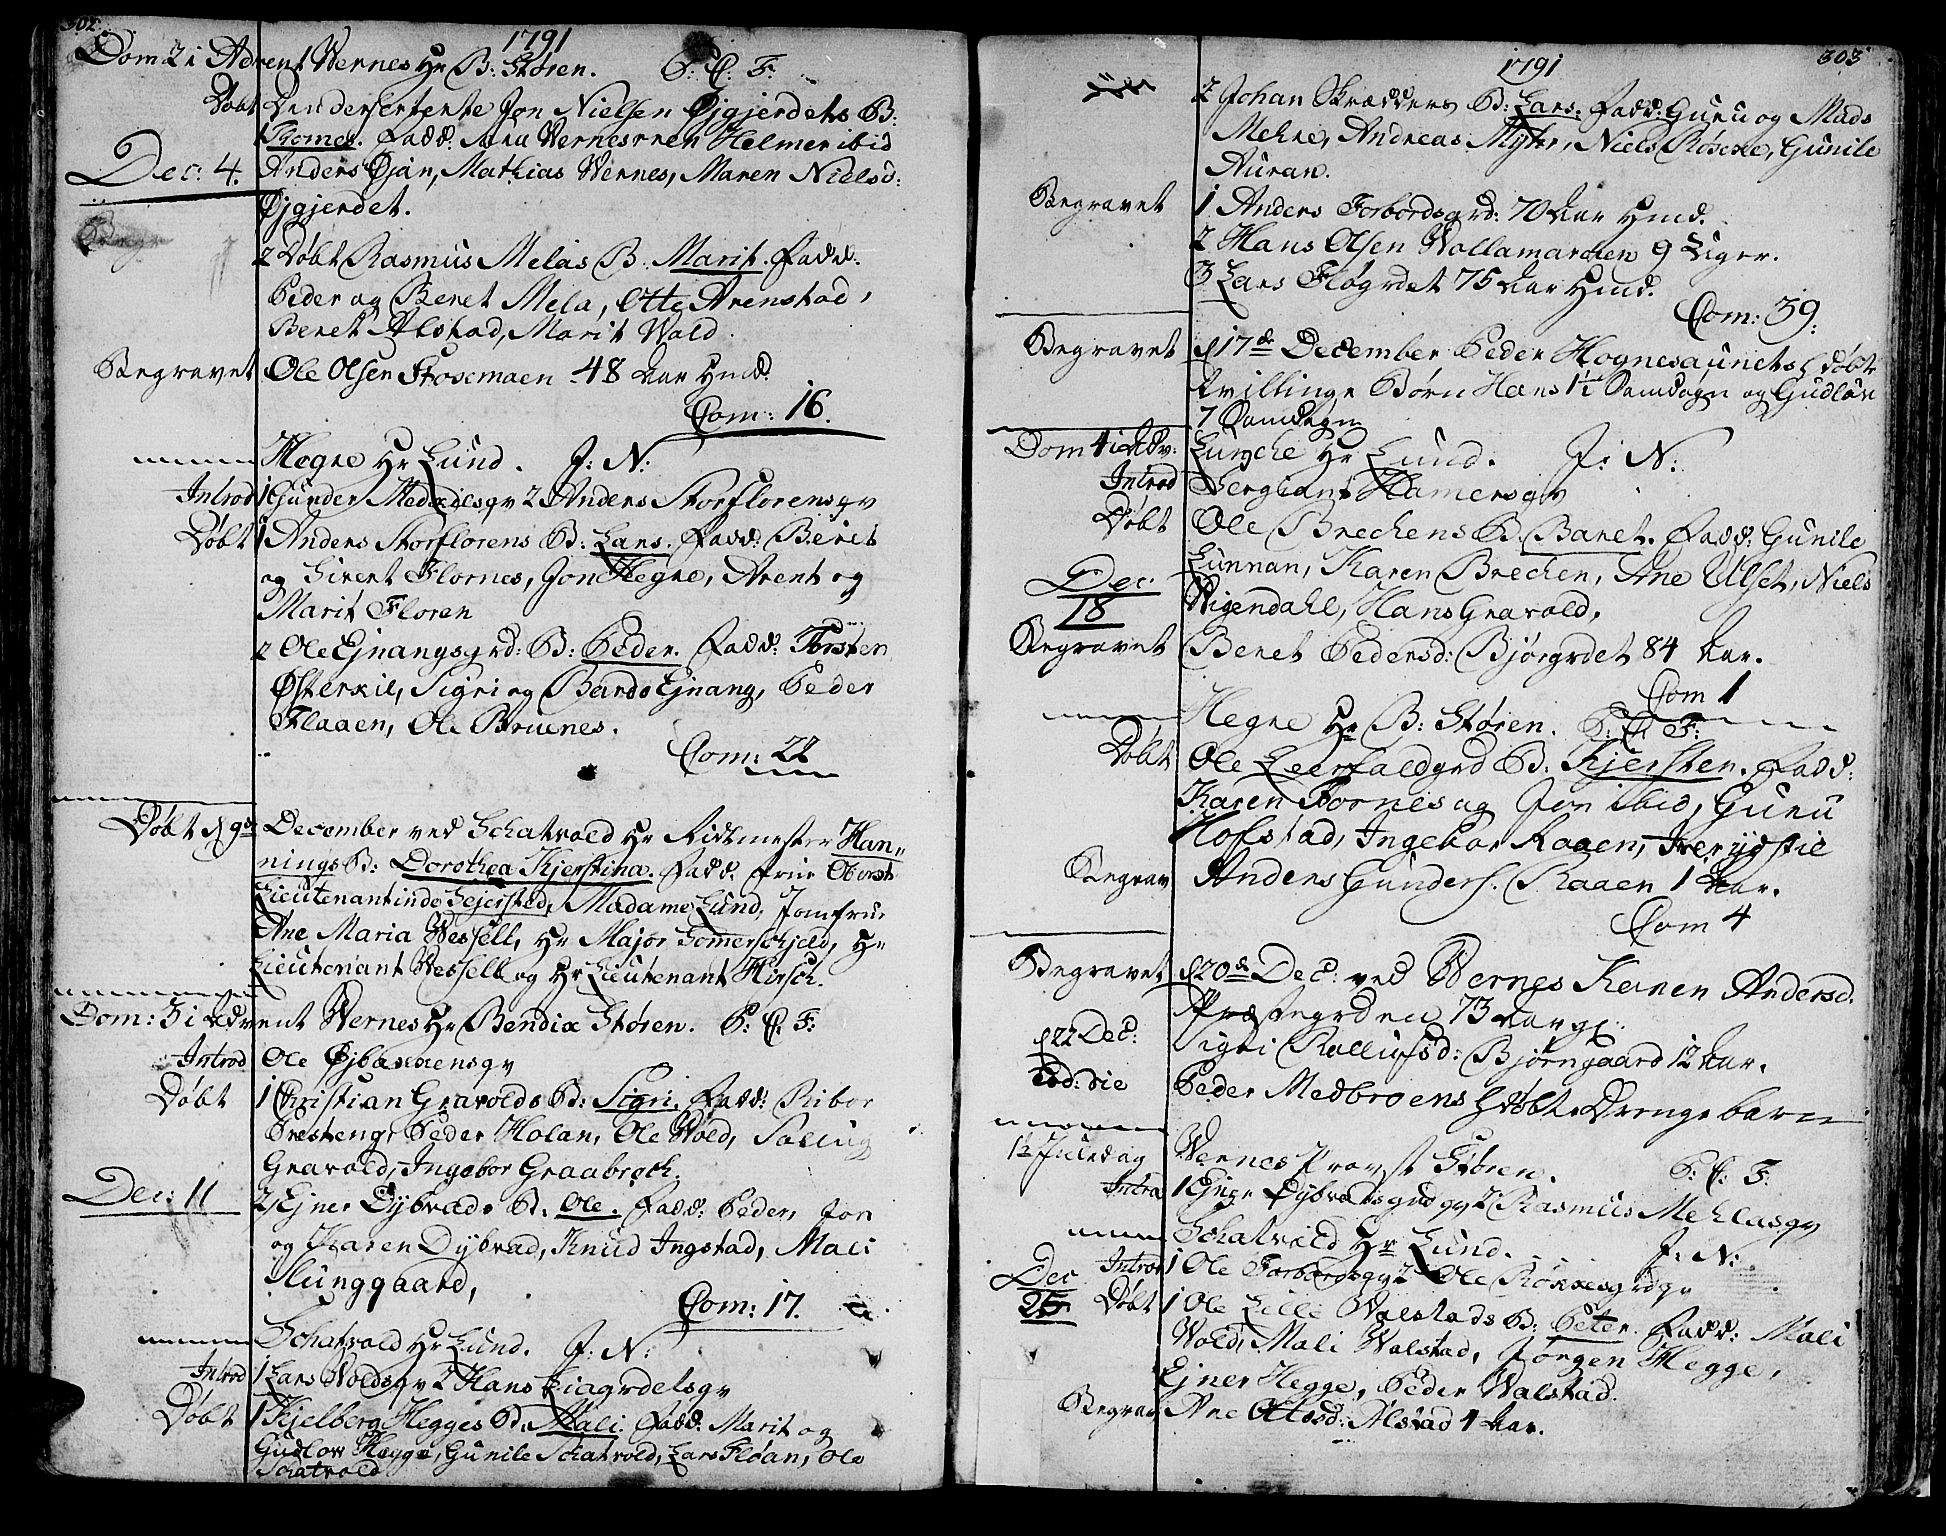 302.
1791
Dom 2 i Advent Wernes Hr B: Støren. P: C: F:
Døbt Jon Nielsen Øjgjerdets B:
Thomes. Fadd: Wernes Helmer ibid
Dec: 4. Anders Øjan, Mathias Wernes, Maren Nielsd:
Øjgjerdet.
2 Døbt Rasmus Melas B. Marit. Fadd.
Peder og Beret Mela, Otte Arenstad,
Beret Alstad, Marit Wold.
Begravet Ole Olsen Stosemoen 48 Aar
Com: 16.
Hegne Hr Lund. J: N:
Introd 1 Gunder Medxxx gv 2 Anders Storflorens gv
Døbt 1 Anders Storflorens B: Lars. Fadd: Beret
og Sivert Flornes, Jon Hegre, Arent og
Marit Floren
2 Ole Ejnangsgrd: B: Peder. Fadd: Torsten
Østerxil, Sigri og Bardo Ejnang, Peder
Flaaen, Ole Bruenes.
Com: 22
Døbt d 9de December ved Schatvold Hr Ridtmester Han-
nings B: Dorothea Kjerstina. Fadd. Frue Oberst
Lieutenantinde Sejersted, Madame Lund, Jomfrue
Ane Maria Wessell, Hr Major Somerschjeld, Hr
Lieutenant Wessell og Hr Lieutenant Hirsch.
Dom: 3 i Advent Wernes Hr Bendix Støren. P: C: F:
Introd Ole Øjbaxxens gv
Døbt 1 Christian Gravolds B: Sigri. Fadd: Ribor
Presteng, Peder Holan, Ole Wold, Salling
Gravold, Ingebor Graabroch.
Dec: 11 2 Ejner Dybvads B. Ole. Fadd: Peder, Jon
og Karen Dybvad, Knud Ingstad, Mali
Munggaard,
Com: 17.
Schatvold Hr Lund. J: N:
Introd 1 Lars Wolds gv 2 Hans gv
Døbt 1 Kjelberg Hegges B. Mali. Fadd: Marit og
Gudlov Hegge, Gunile Schatvold, Lars Fløan, Ole
Schatvold
1791
303
2 Johan Skrædders B: Lars. Fadd: Guru og Mads
Mehne, Andreas Myhr, Niels Røsexe, Gunile
Auran.
Begravet 1 Anders Forbordsgrd: 70 Aar
2 Hans Olsen Wollamarxen 9 Uger.
3 Lars Fløgrdet 75 Aar
Com: 39:
Begravet d 17de December Peder Hognesaunets døbt
tvillinge Børn Hans 1½ Samdøgn og Gudlov
7 Samdøgn
Dom 4 i Adv: Lunche Hr Lund. J: N:
Introd Sergiant Hamers gv
Døbt Ole Brechens B. Baret. Fadd: Gunile
Lunnan, Karen Brechen, Ane Ulset, Niels
Dec: 18 Wigendahl, Hans Gravold.
Begravet Beret Pedersd: Bjørgrdet 84 Aar.
Com 1
Hegne Hr B: Støren. P: C: F:
Døbt Ole Leerfaldgrd B. Kjersten. Fadd:
Karen Fornes og Jon ibid, Guru
Hofstad, Ingebor Raaen, Iver
Begrav Anders Gunders. Raaen 1 Aar.
Com 4
Begravet d 20de Dec: ved Wernes Karen Andersd.
Præstegrden 73 Aar gl:
d 22 Dec: Sigri Rollufsd: Bjørngaard 12 Aar.
Eod: die Peder Medbroens døbt Drengebarn
1ste Juledag Wernes Provst Støren. P: C: F:
Intro 1 Ejner Dybvads gv 2 Rasmus Mehlas gv
Schatvold Hr Lund. J: N:
Dec 25 Introd 1 Ole Forbords gv 2 Ole gv
Døbt 1 Ole Lille Walstads B: Peter. Fadd: Mali
Wold, Mali Walstad, Jørgen Hegge,
Ejner Hegge, Peder Walstad.
Begrav Ane Olsd: Alstad 1 Aar.